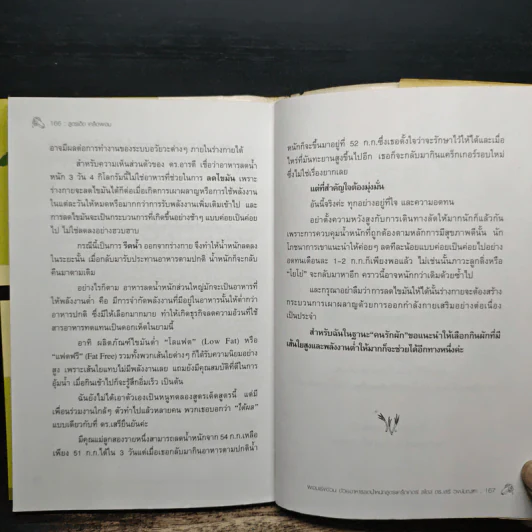 166
อาจมีผลต่อการทำงานของระบบอวัยวะต่างๆ ภายในร่างกายได้
สำหรับความเห็นส่วนตัวของ ดร.อารตี เชื่อว่าอาหารลดน้ำ
หนัก 3 วัน 4 กิโลกรัมนี้ไม่ใช่อาหารที่ช่วยในการ ลดไขมัน เพราะ
ร่างกายจะลดไขมันได้ก็ต่อเมื่อเกิดการเผาผลาญหรือการใช้พลังงาน
ในแต่ละวันให้หมดหรือมากกว่าการรับพลังงานเพิ่มเติมเข้าไป และ
การลดไขมันจะเป็นกระบวนการที่เกิดขึ้นอย่างช้าๆ แบบค่อยเป็นค่อย
ไป ไม่ใช่ลดลงอย่างฮวบฮาบ
กรณีนี้เป็นการ รีดน้ำ ออกจากร่างกาย จึงทำให้น้ำหนักลดลง
ในระยะนั้น เมื่อกลับมารับประทานอาหารตามปกติ น้ำหนักก็จะกลับ
คืนมาตามเดิม
อย่างไรก็ตาม อาหารลดน้ำหนักส่วนใหญ่มักจะเป็นอาหารที่
ให้พลังงานต่ำ คือ มีการจำกัดพลังงานที่มีอยู่ในอาหารนั้นให้ต่ำกว่า
อาหารปกติ ซึ่งมีให้เลือกมากมาย ทำให้เกิดธุรกิจลดความอ้วนที่ใช้
สารอาหารทดแทนเป็นดอกเห็ดในยามนี้
อาทิ ผลิตภัณฑ์ไขมันต่ำ "โลแฟต" (Low Fat) หรือ
"แฟตฟรี" (Fat Free) รวมทั้งพวกเส้นใยต่างๆ ก็ได้รับความนิยมอย่าง
สูง เพราะเส้นใยแทบไม่มีพลังงานเลย แถมยังมีคุณสมบัติที่ดีในการ
อุ้มน้ำ เมื่อกินเข้าไปก็จะรู้สึกอิ่มเร็ว เป็นต้น
ฉันยังไม่ได้เอาตัวเองเป็นหนูทดลองสูตรเด็ดสูตรนี้ แต่มี
เพื่อนร่วมงานใกล้ๆ ตัวทำไปแล้วหลายคน พวกเธอบอกว่า "ได้ผล"
แบบเดียวกับที่ ดร.เสรียืนยันค่ะ
มีคุณแม่ลูกสองรายหนึ่งสามารถลดน้ำหนักจาก 54 ก.ก.เหลือ
เพียง 51 ก.ก.ได้ใน 3 วันแต่เมื่อเธอกลับมากินอาหารตามปกติน้ำ
หนักก็จะขึ้นมาอยู่ที่ 52 ก.ก.ซึ่งเธอตั้งใจว่าจะรักษาไว้ให้ได้และเมื่อ
ใดที่มันทะยานสูงขึ้นไปอีก เธอก็จะกลับมากินแคร็กเกอร์รอบใหม่
ซึ่งไม่ใช่เรื่องยากเลย
แต่ที่สำคัญใจต้องมุ่งมั่น
อันนี้จริงค่ะ ทุกอย่างอยู่ที่ใจ และความอดทน
อย่าตั้งความหวังสูงกับการเดินทางลัดให้มากนักก็แล้วกัน
เพราะการควบคุมน้ำหนักที่ถูกต้องตามหลักการมีสุขภาพดีนั้น นัก
โภชนาการเขาแนะนำให้ค่อยๆ ลดทีละน้อยแบบค่อยเป็นค่อยไปอย่าง
อดทนเดือนละ 1-2 ก.ก.ก็เพียงพอแล้ว ไม่เช่นนั้นภาวะลูกดิ่งหรือ
"โยโย่" จะกลับมาหาอีก คราวนี้อาจหนักกว่าเดิมด้วยซ้ำไป
และกรุณาอย่าลืมว่าการลดไขมันให้ได้นั้นร่างกายจะต้องสร้าง
กระบวนการเผาผลาญด้วยการออกกำลังกายเสริมอย่างต่อเนื่อง
เป็นประจำ
สำหรับฉันในฐานะ"คนรักผัก"ขอแนะนำให้เลือกกินผักที่มี
เส้นใยสูงและพลังงานต่ำให้มากก็จะช่วยได้อีกทางหนึ่งค่ะ
167